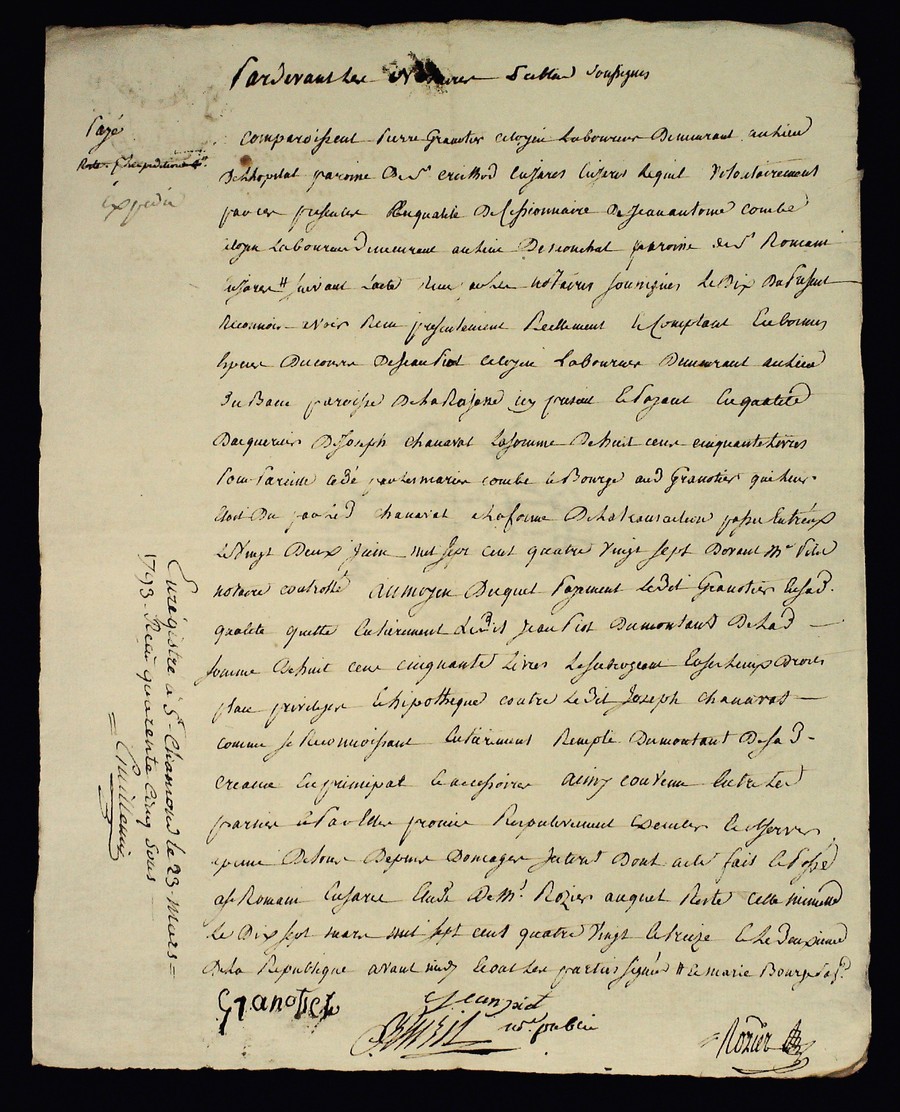 Pardevant Les Notaires Publics Soussignés
Payé
Expédié
comparoissent Pierre Granotier citoyen Laboureur Demeurant au Lieu
De Lhopital paroisse De St Lequel Volontairement
par ces presentes En qualité De Cessionnaire De Jean antoine combe
citoyen Laboureur Demeurant au Lieu De paroisse de St Romain
En Jarez # suivant Lacte Recu par Les notaires soussignés Le Dix Du Present
Reconnoit avoir Recu presentement Reellement & Comptant En bonnes
Especes Ducours De Jean Piot citoyen Laboureur Demeurant au Lieu
Du Banc paroisse De La icy present & Payant En qualité
Dacquereur De Joseph chanavat La somme De huit cent cinquante Livres
Pour Pareille cedé par Les mariés combe & Bourge aud Granotier qui Leur
étoit Du par Led chanavat a La forme De La transaction passée Entreux
Le Vingt Deux Juin mil sept cent quatre vingt sept Devant Me
notaire controllé au moyen Duquel Payment Le dit Granotier En sad.
qualité quitte Entièrement Ledit Jean Piot Du montant De Lad
somme De huit cent cinquante Livres Le subrogeant En ses Lieux Droits
place privileges & hipotheque contre Le dit Joseph chanavat
comme se Reconnoissant Entièrement Remplit Du montant De sad
creance En principal & accessoires ainsy convenu Entre Les
parties & Par Elles promis Respectivement Executer & observer
a peine De tous Depens Domages Interets Dont acte fait & Passé
a St Romain En Jarez Etude De Me Rozier auquel Reste cette minutte
Le Dix sept mars mil sept cent quatre vingt treize & Le Deuxieme
De La Republique avant midy & ont Les parties signé # & marie Bourge
Granotier
Jean piot
re public
Rozier
Enregistré à St Chamond le 23 Mars
1793. Recu quarente cinq sous
Guillemin